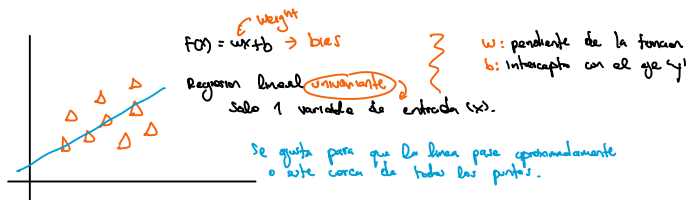 weight
F(x) = wx+b → bias
w: pendiente de la funcion
b: intercepto con el eje "y"
Regresion lineal univariante
Solo 1 variable de entrada (x).
Se ajusta para que la linea pase aproximadamente
o este cerca de todos los puntos.